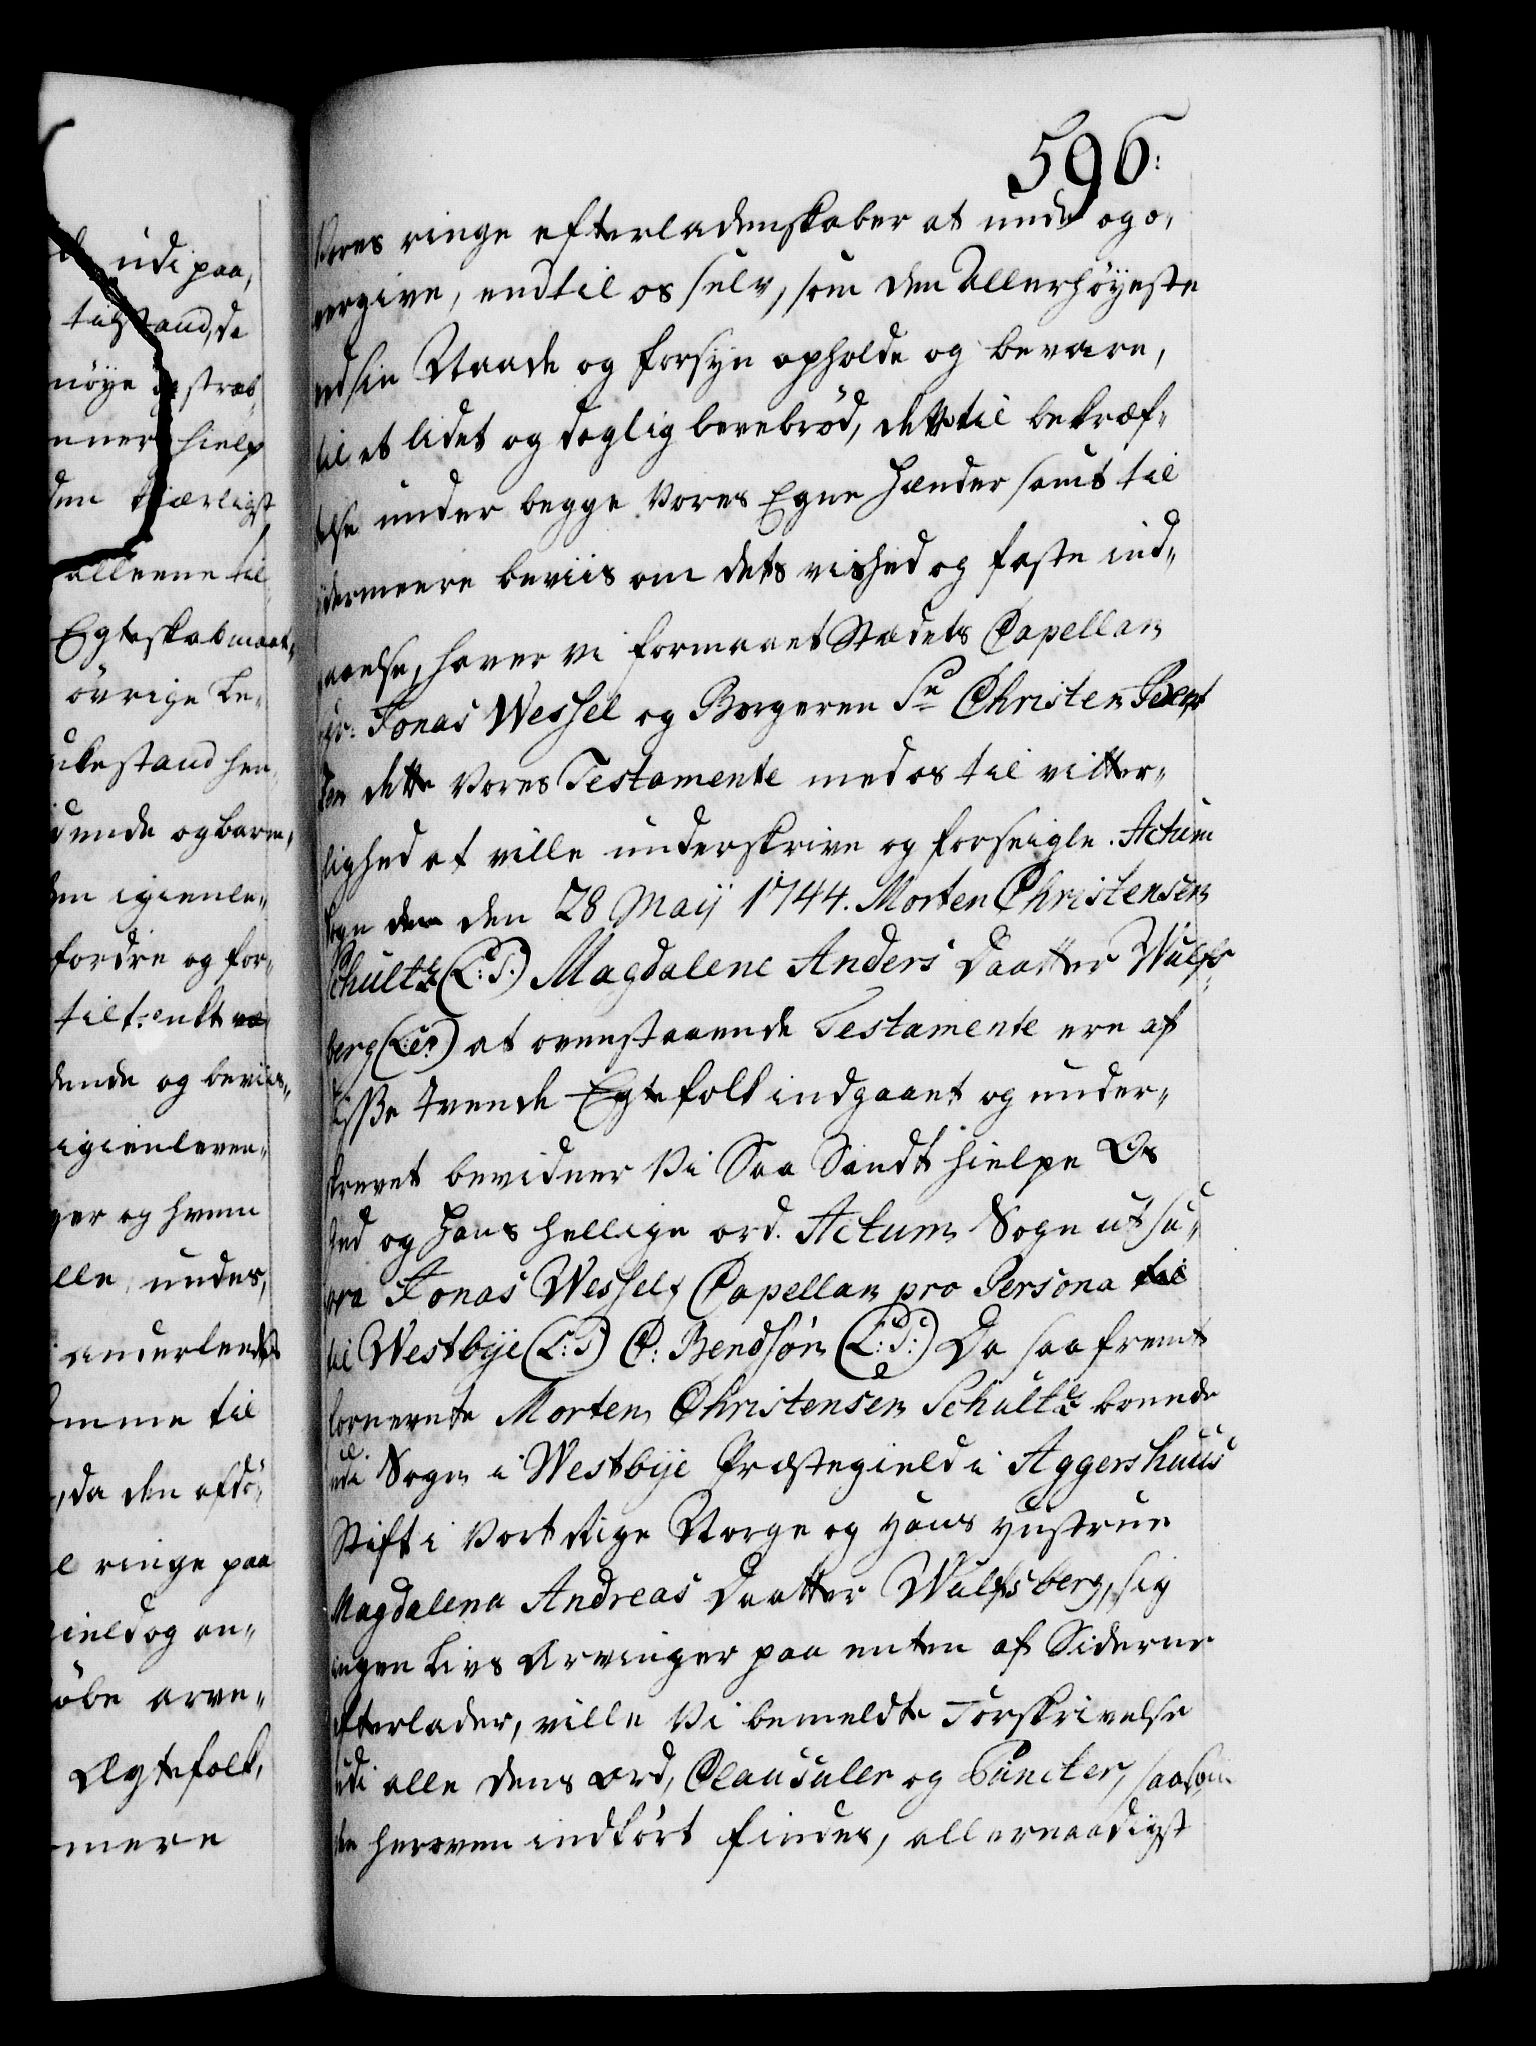 596:
Vores ringe efterladenskaber at unde og o¬
vergive, end til os selv, som den Allerhöyeste
ved sin Naade og forsyn opholde og bevare,
til et lidet og daglig levebröd, dette til bekræf¬
telse under begge Vores Egne Hænder samt til
ydermeere beviis om dets vished og faste ind¬
gaaelse, haver vi formaaet Stædets Capellan
Hr: Jonas Wessel og Borgeren Sr Christen Bent
sen dette Vores Testamente med os til vitter¬
lighed at ville underskrive og forseigle. Actum
Sogn den den 28 Maij 1744. Morten Christensen
Schultz (L:S:) Magdalene Anders Daatter Wulfs¬
berg (L:S:) at ovenstaaende Testamente ere af
disse tvende Egtefolk indgaaet og under¬
skrevet bevidner Vi Saa Sandt hielpe Os
Gud og Hans hellige ord. Actum Sogn ut su¬
pra Jonas Wessel, Capellan pro Persona til
til Westbye (L:S) C: Bendsön (L:S:) Da saafremt
fornevnte Morten Christensen Schultz boende
udi Sogn i Westbye Præstegield i Aggershuus
Stift i Vort Rige Norge og hans hustrue
Magdalena Andreas Daatter Wulfsberg, sig
ingen Livs Arvinger paa enten af Siderne
efterlader, ville Vi bemeldte Forskrivelse
udi alle dens ord, Clausuler og Puncter, saasom
den heroven indfört findes, allernaadigst